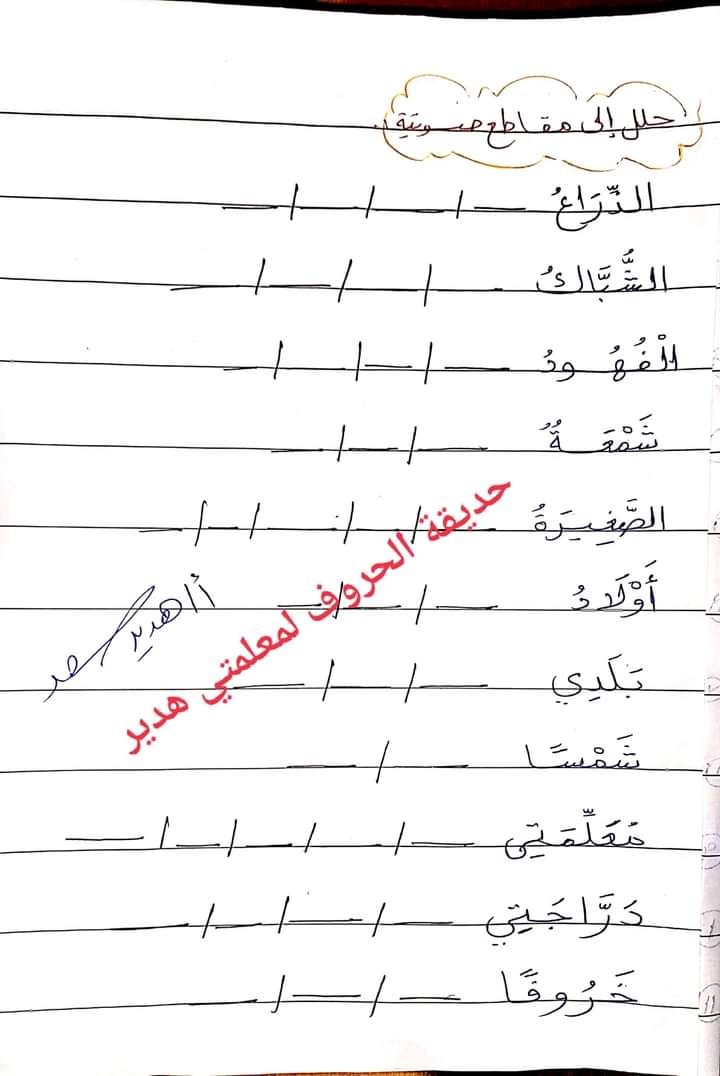 حلل إلى مقاطع صوتية
الذِّرَاعُ
الشُّبَّاكُ
الْفُهُودُ
شَمْعَةٌ
الصَّغِيرَةُ
أَوْلَادُ
بَلَدِي
شَمْسًا
مُعَلِّمَتِي
دَرَّاجَتِي
خَرُوفًا
حديقة الحروف لمعلمتي هدير
أ/ هدير